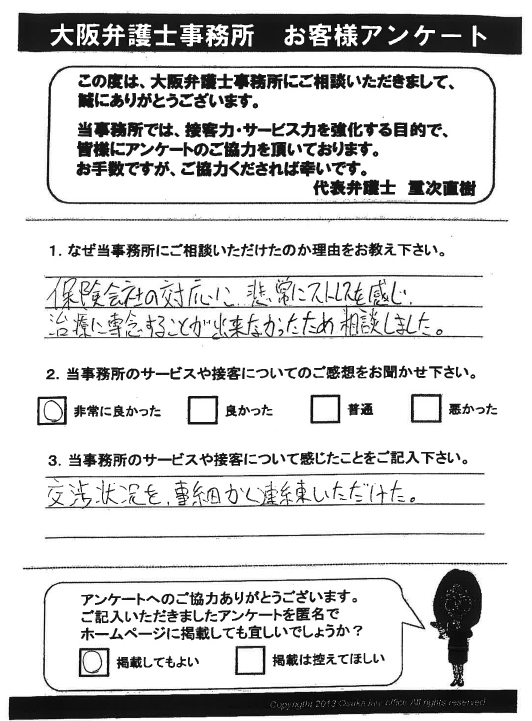 大阪弁護士事務所 お客様アンケート
この度は、大阪弁護士事務所にご相談いただきまして、
誠にありがとうございます。
当事務所では、接客力・サービス力を強化する目的で、
皆様にアンケートのご協力を頂いております。
お手数ですが、ご協力くだされば幸いです。
代表弁護士 重次直樹
1. なぜ当事務所にご相談いただけたのか理由をお教え下さい。
保険会社の対応に、非常にストレスを感じ、
治療に専念することが出来なかったため相談しました。
2. 当事務所のサービスや接客についてのご感想をお聞かせ下さい。
非常に良かった 良かった 普通 悪かった
3. 当事務所のサービスや接客について感じたことをご記入下さい。
交渉状況を、事細かく連絡いただけた。
アンケートへのご協力ありがとうございます。
ご記入いただきましたアンケートを匿名で
ホームページに掲載しても宜しいでしょうか?
掲載してもよい 掲載は控えてほしい
Copyright 2013 Osaka law office All rights reserved